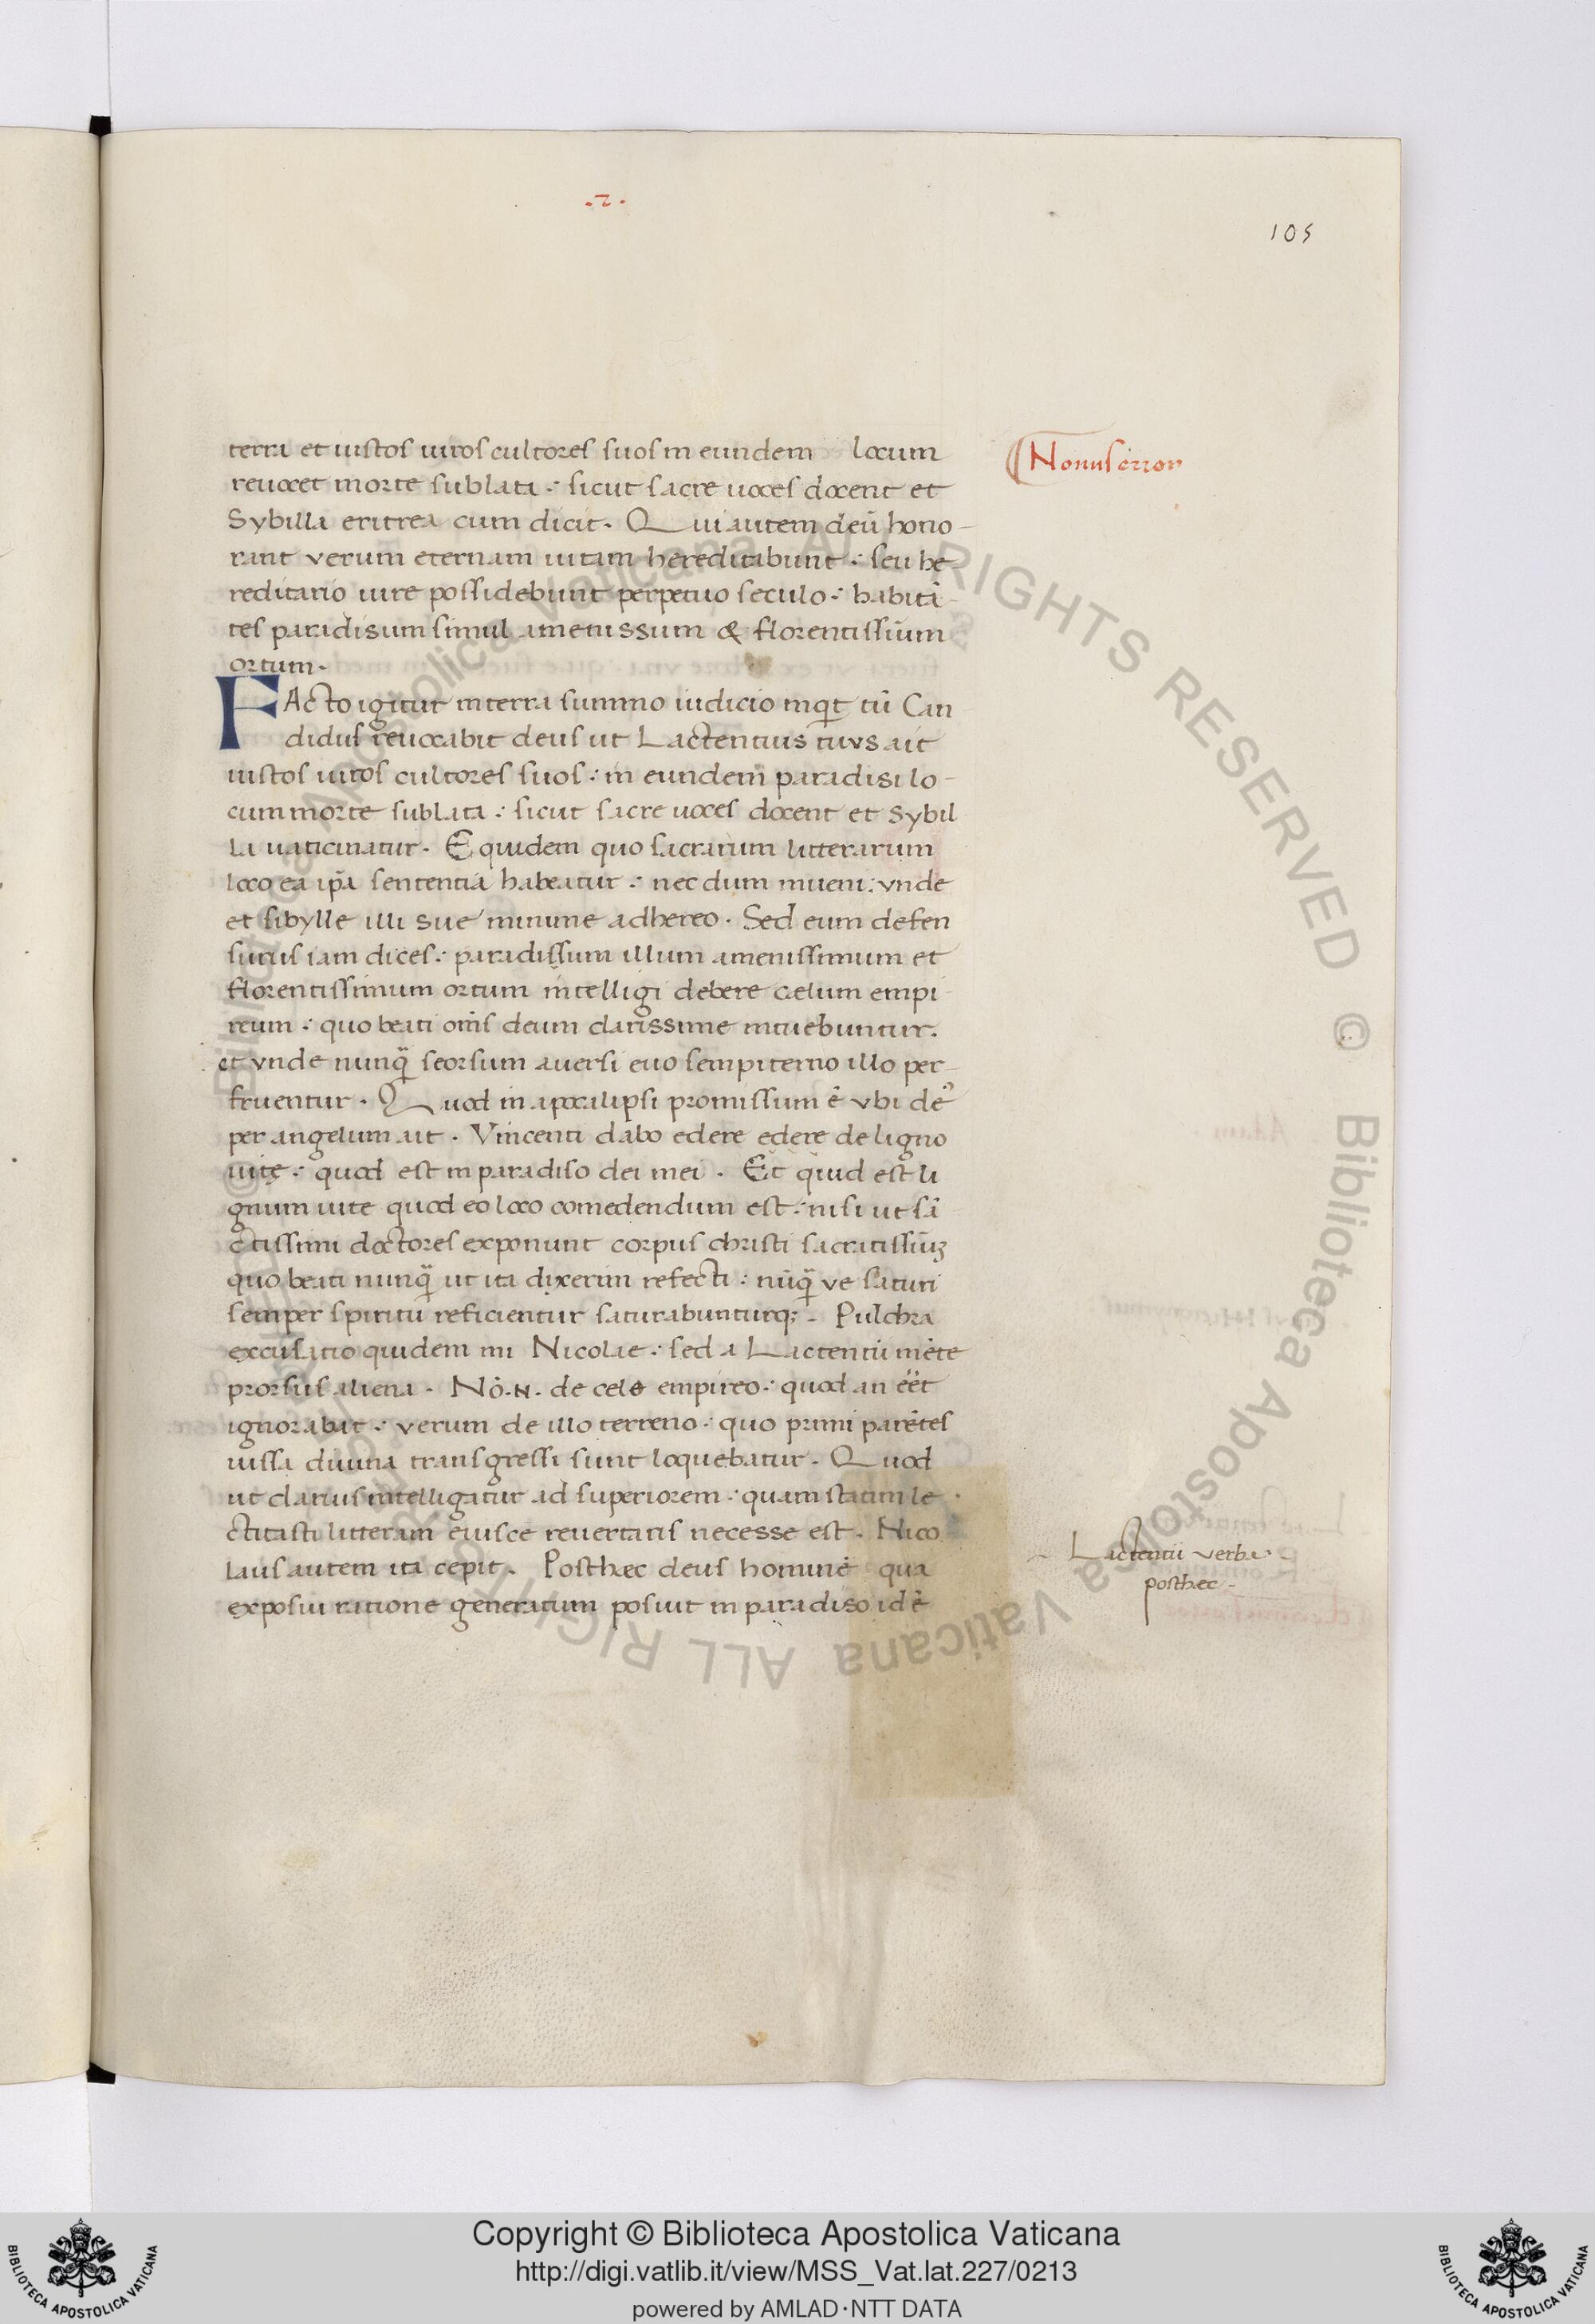 .2.
105
terra et iustos uiros cultores suos in eundem locum
reuocet morte sublata : sicut sacre uoces docent et
Sybilla eritrea cum dicit . Qui autem deū hono-
rant verum eternam uitam hereditabunt : seu he-
reditario iure possidebunt perpetuo seculo : habitā-
tes paradisum simul amenissum & florentissiūm
ortum .
FActo igitur in terra summo iudicio inq̇t tū Can
didus reuocabit deus ut Lactentius tuus ait
iustos uiros cultores suos : in eundem paradisi lo-
cum morte sublata : sicut sacre uoces docent et Sybil
la uaticinatur . Equidem quo sacrarum litterarum
loco ea ip̄a sententia habeatur : nec dum inueni : vnde
et sibylle illi sue minime adhereo . Sed eum defen
surus iam dices : paradissum illum amenissimum et
florentissimum ortum intelligi debere celum empi
reum : quo beati om̄s deum clarissime intuebuntur .
et vnde nunq̄ seorsum auersi euo sempiterno illo per-
fruentur . Quod in apocalipsi promissum ē vbi de᷒
per angelum ait . Vincenti dabo edere edere de ligno
uitę : quod est in paradiso dei mei . Et quid est li
gnum uite quod eo loco comedendum est : nisi ut sā
ctissimi doctores exponunt corpus christi sacratissiūꝫ
quo beati nunq̄ ut ita dixerim refecti : nūq̄ ve saturi
semper spiritu reficientur saturabunturq; . Pulchra
excusatio quidem mi Nicolae : sed a Lactentii mēte
prorsus aliena . Nō .N. de celo empireo : quod an eēt
ignorabat : verum de illo terreno : quo primi parētes
iussa diuina transgressi sunt loquebatur . Quod
ut clarius intelligatur ad superiorem : quam statim le
ctitasti litteram eiusce reuertaris necesse est . Nico
laus autem ita cepit . Posthæc deus hominē qua
exposui ratione generatum posuit in paradiso id ē
Nonus error
Lactentii verba
posthec
Copyright © Biblioteca Apostolica Vaticana
http://digi.vatlib.it/view/MSS_Vat.lat.227/0213
powered by AMLAD·NTT DATA
BIBLIOTECA APOSTOLICA VATICANA
BIBLIOTECA APOSTOLICA VATICANA
© Biblioteca Apostolica Vaticana ALL RIGHTS RESERVED © Biblioteca Apostolica Vaticana ALL RIGHTS